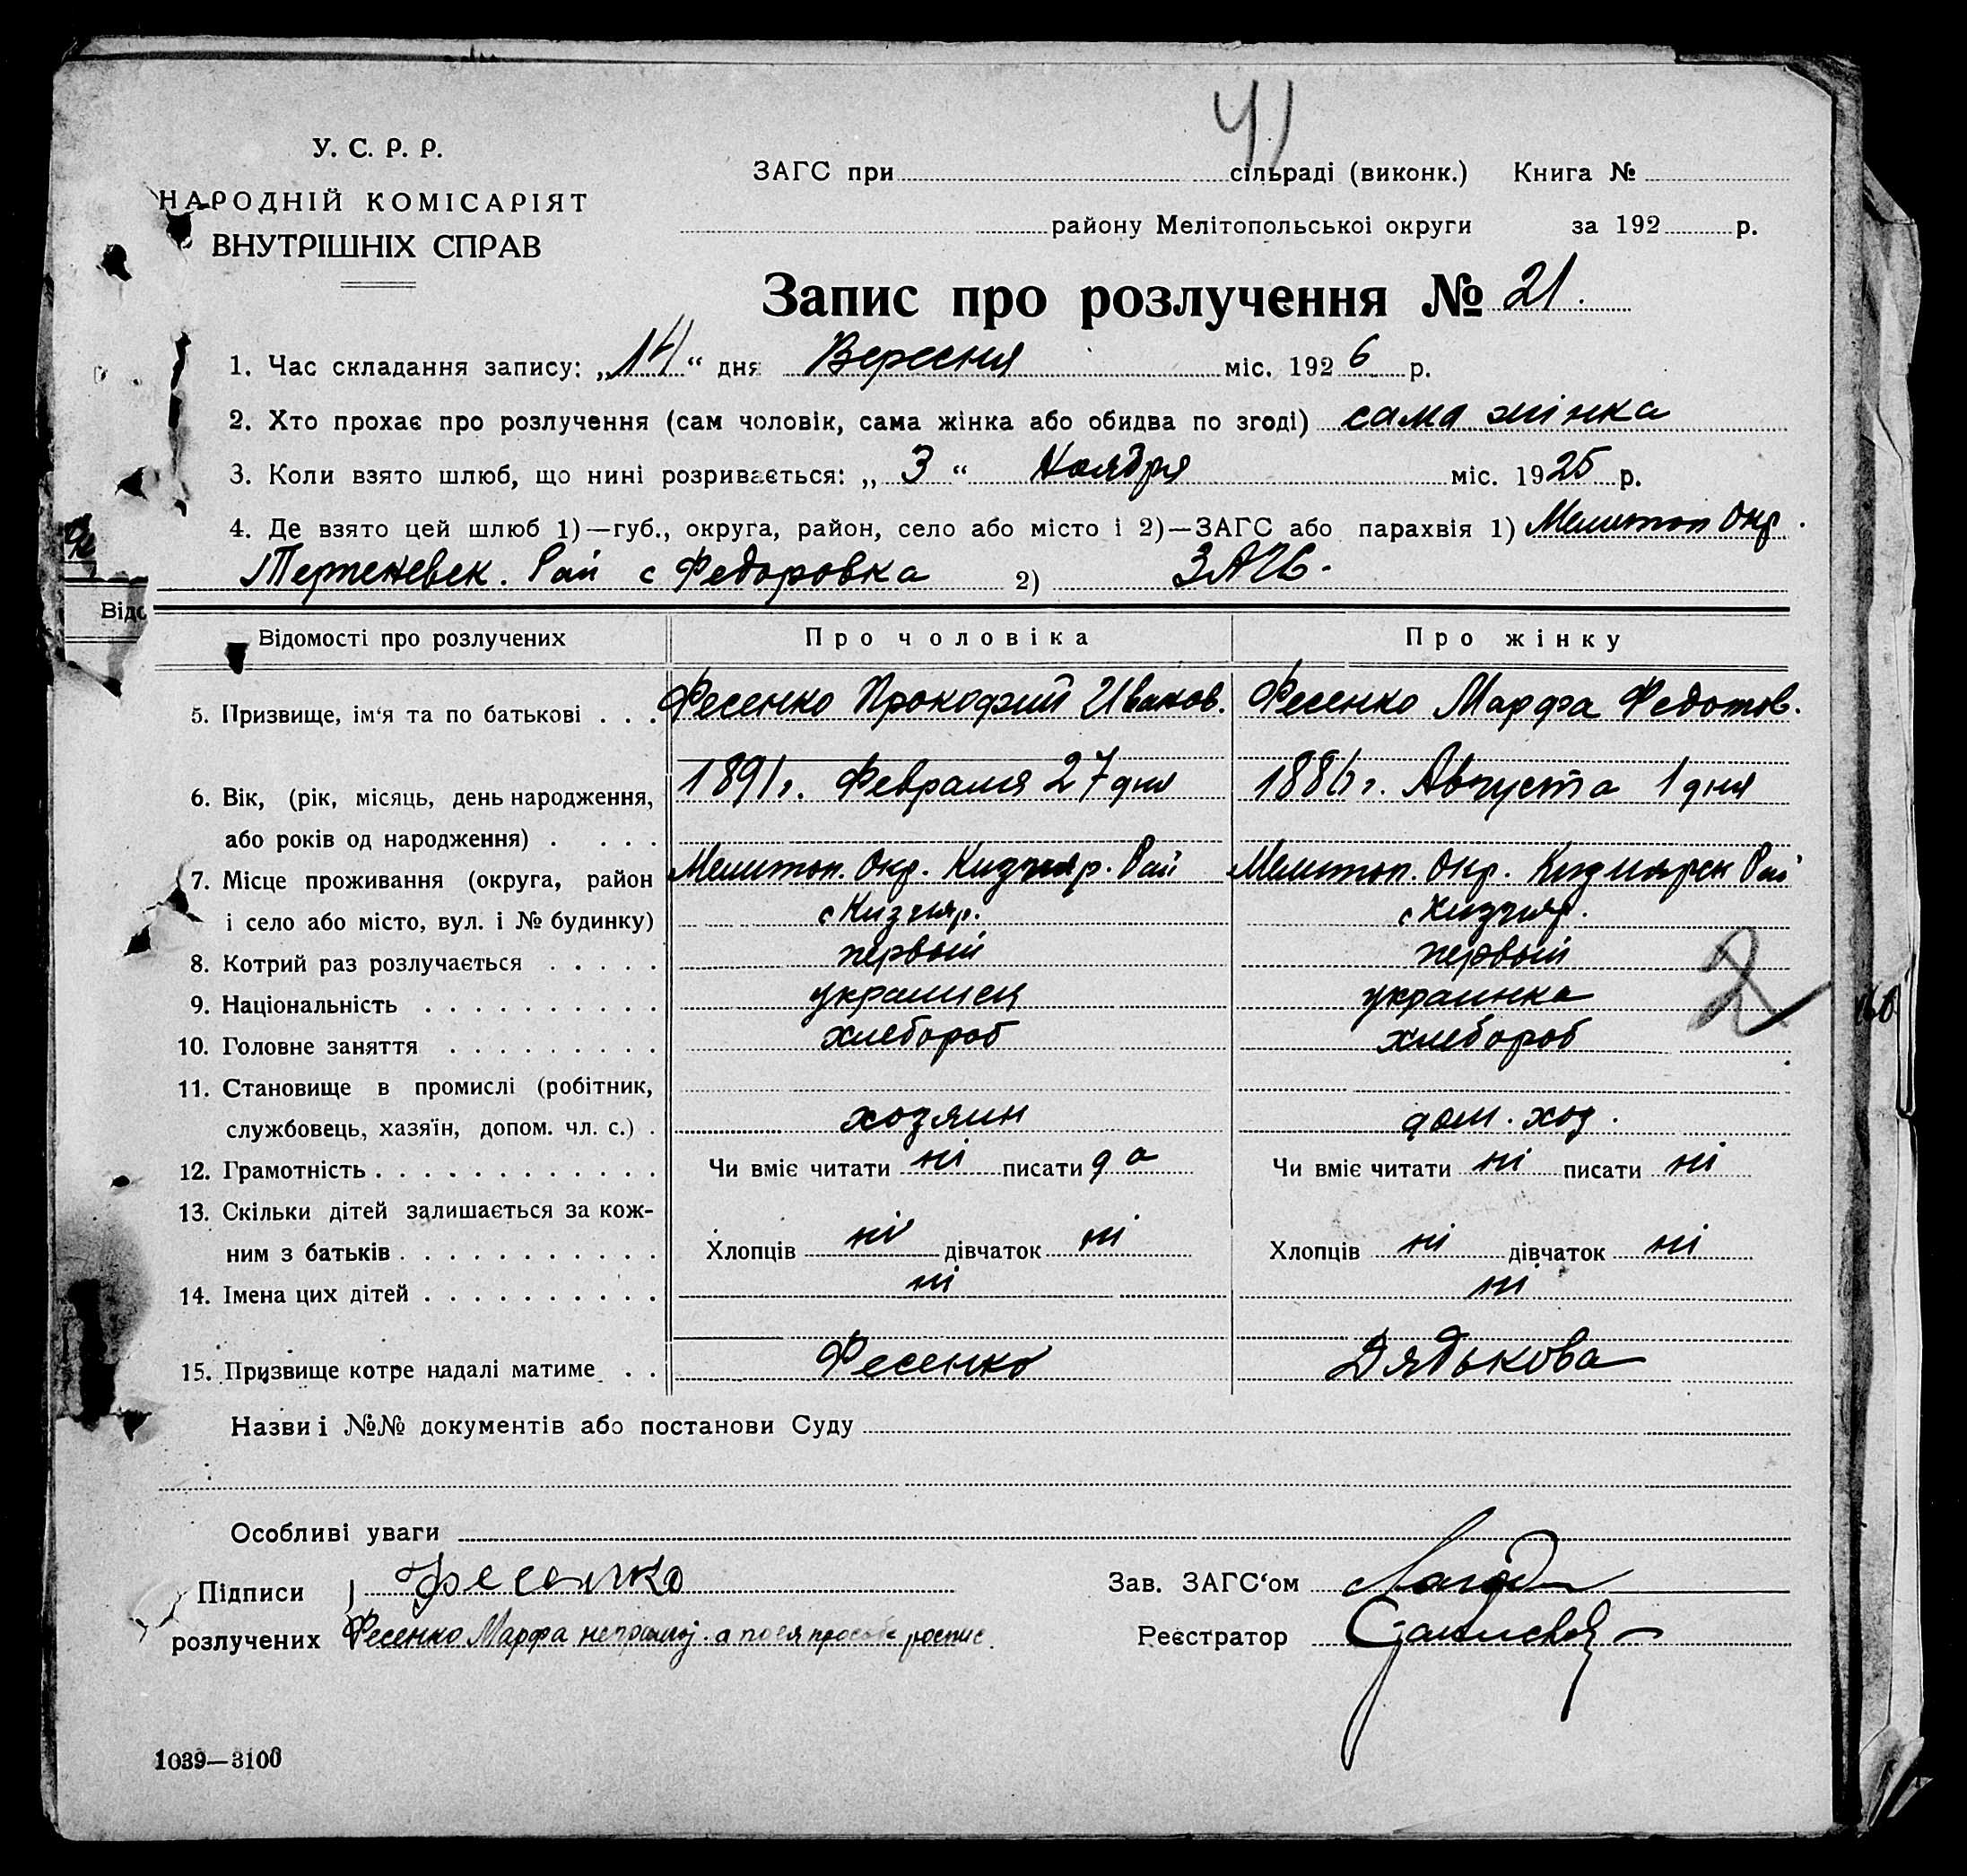 41
У. С. Р. Р.
НАРОДНІЙ КОМІСАРІЯТ
ВНУТРІШНІХ СПРАВ
ЗАГС при сільраді (виконк.) Книга №
району Мелітопольської округи за 192 р.
Запис про розлучення № 21.
1. Час складання запису: „14“ дня Вересня міс. 1926 р.
2. Хто прохає про розлучення (сам чоловік, сама жінка або обидва по згоді) сама жінка
3. Коли взято шлюб, що нині розривається: „3“ Ноября міс. 1925 р.
4. Де взято цей шлюб 1)—губ., округа, район, село або місто і 2)—ЗАГС або парахвія 1) Мелитоп Окр.
Рай с Федоровка 2)
Відо
Відомості про розлучених Про чоловіка Про жінку
5. Призвище, ім‘я та по батькові . . . Фесенко Прокофий Иванов. Фесенко Марфа Федотов.
6. Вік, (рік, місяць, день народження, 1891 г. Февраля 27 дня 1886 г. Августа 1 дня
або років од народження) . . . .
7. Місце проживання (округа, район Мелитоп. Окр. Кизияр. Рай Мелитоп. Окр. Кизиярск Рай
і село або місто, вул. і № будинку) с Кизияр. с Кизияр.
8. Котрий раз розлучається . . . . . первый первый
9. Національність . . . . . . . . . . украинец украинка
10. Головне заняття . . . . . . . . . хлебороб хлебороб
2
11. Становище в промислі (робітник,
службовець, хазяїн, допом. чл. с.) . хозяин дом. хоз.
12. Грамотність . . . . . . . . . . . . Чи вміє читати ні писати да Чи вміє читати ні писати ні
13. Скільки дітей залишається за кож-
ним з батьків . . . . . . . . . . . Хлопців ні дівчаток ні Хлопців ні дівчаток ні
14. Імена цих дітей . . . . . . . . . . ні ні
15. Призвище котре надалі матиме . . Фесенко Дядькова
Назви і №№ документів або постанови Суду
Особливі уваги
Підписи Фесенко Зав. ЗАГС‘ом
розлучених Фесенко Марфа а Реєстратор
1039—3100